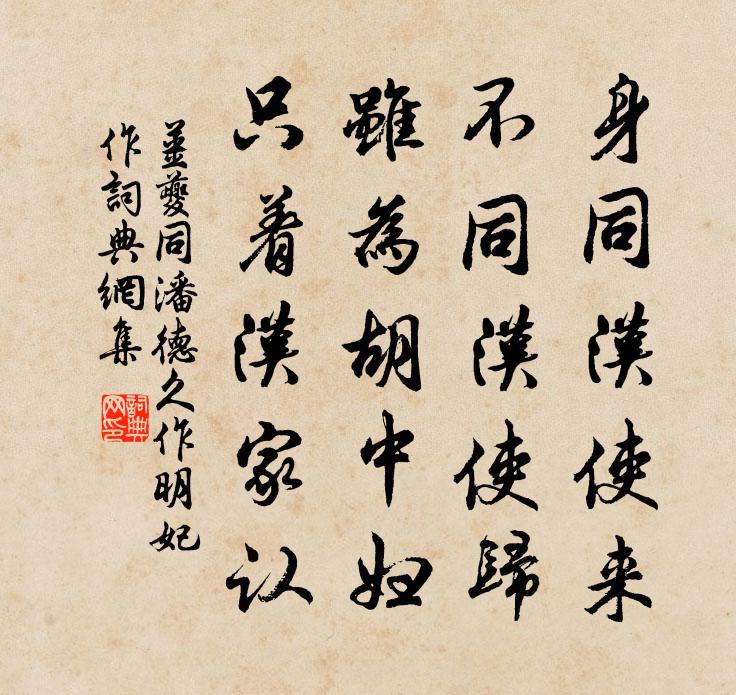 身同漢使来
不同漢使歸
雖為胡中婦
只着漢家衣
薑夔同潘德久作明妃
作詞典網集
詞典
网印